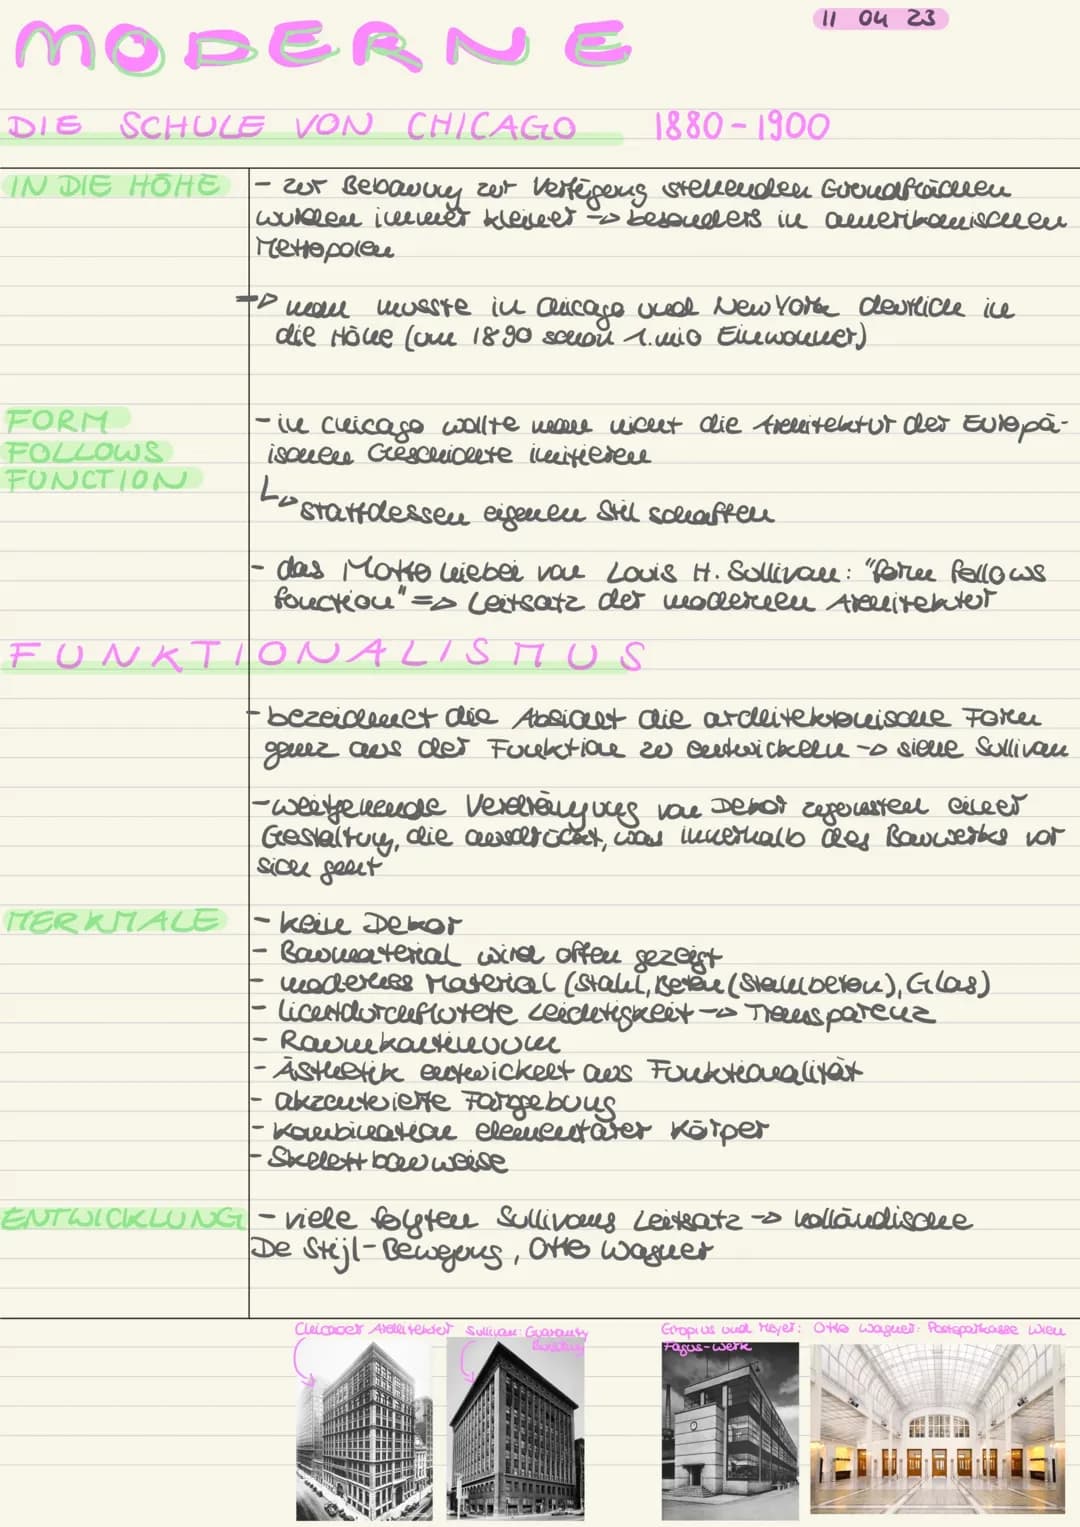 MODERNE
11 04 23
DIE SCHULE VON CHICAGO 1880-1900
IN DIE HÖHE
- zur Bebauung zur Verfügung stehenden Grundflächen
wurden immer kleiner -> besonders in amerikanischen
Metropolen
=> man musste in Chicago und New York deutlich in
die Höhe (um 1890 schon 1.mio Einwohner)
FORM
FOLLOWS
FUNCTION
- in Chicago wollte man nicht die Architektur der Europä-
ischen Geschichte imitieren
↳ stattdessen eigenen Stil schaffen
- das Motto hiebei von Louis H. Sullivan: "form follows
function" => Leitsatz der modernen Architektur
FUNKTIONALISMUS
- bezeichnet die Absicht die architektonische Form
ganz aus der Funktion zu entwickeln -> siehe Sullivan
- weitgehende Verdrängung von Dekor zugunsten einer
Gestaltung, die ausdrückt, was innerhalb des Bauwerks vor
sich geht
MERKMALE
- kein Dekor
- Baumaterial wird offen gezeigt
- modernes Material (Stahl, Beton (Stahlbeton), Glas)
- lichtdurchflutete Leichtigkeit -> Transparenz
- Raumkontinuum
- Ästhetik entwickelt aus Funktionalität
- akzentuierte Farbgebung
- Kombination elementarer Körper
- Skelettbauweise
ENTWICKLUNG
- viele folgten Sullivans Leitsatz -> holländische
De Stijl-Bewegung, Otto Wagner
Chicagoer Architektur
Sullivan: Guaranty
Building
Gropius und Meyer:
Fagus-Werk
Otto Wagner: Postsparkasse Wien